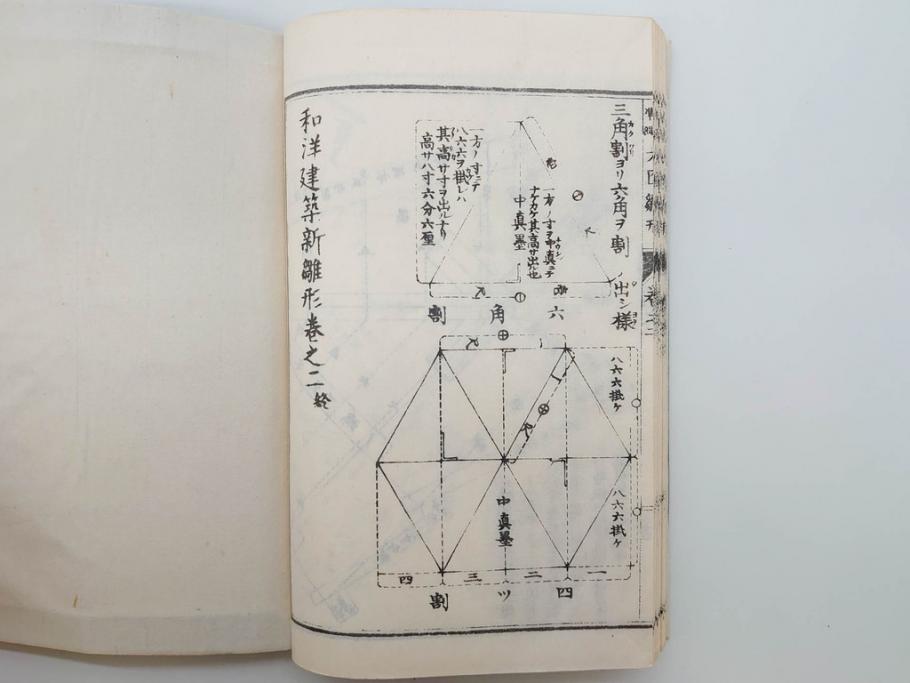 三角割ヨリ六角ヲ割
出シ様
一方ノ寸ヲ中真ニテ
ナゲカケ其高サ出ル也
中真墨
一方ノ寸ニテ
八六六ヲ掛レハ
其高サ寸ヲ出ルナリ
高サ八寸六分六厘
六角割
八六六掛ケ
八六六掛ケ
中真墨
一
二
三
四
四ツ割
和洋建築新雛形巻之二終